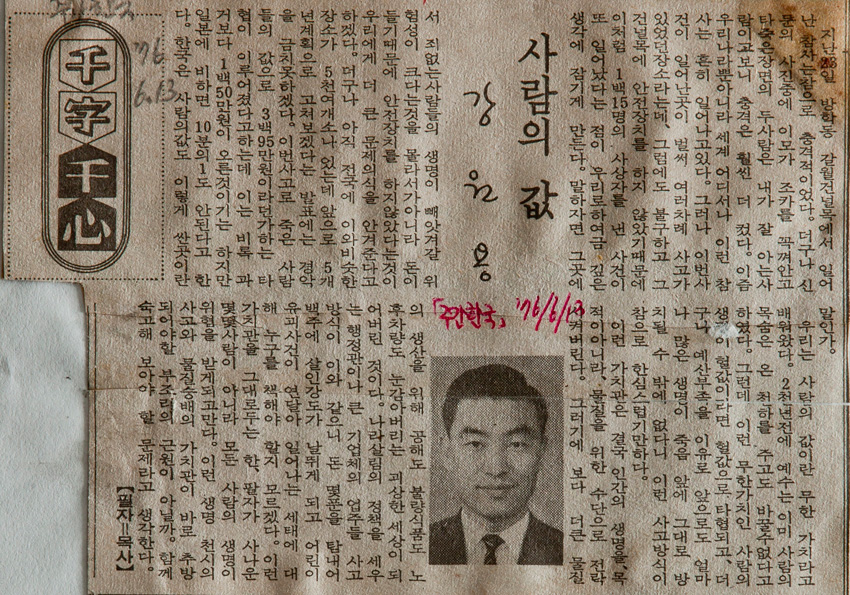 지난 23일 방학동 갈월건널목에서 일어
난 참사는 참으로 충격적이었다. 더구나 신
문의 사진중에 이모가 조카를 꼭껴안고
타죽은장면의 두사람은 내가 잘 아는사
람이고보니 충격은 훨씬 더 컸다. 이즘
우리나라뿐아니라 세계 어디서나 이런 참
사는 흔히 일어나고있다. 그러나 이번사
건이 일어난곳이 벌써 여러차례 사고가
있었던장소라는데, 그럼에도 불구하고 그
건널목에 안전장치를 하지 않았기때문에
이처럼 1백15명의 사상자를 낸 사건이
또 일어났다는 점이 우리로하여금 깊은
생각에 잠기게 만든다. 말하자면 그곳에
사람의 값
강원용
서 죄없는사람들의 생명이 빼앗겨갈 위
험성이 크다는것을 몰라서가아니라 돈이
들기때문에 안전장치를 하지않았다는것이
우리에게 더 큰 문제의식을 안겨준다고
하겠다. 더구나 아직 전국에 이와비슷한
장소가 5천여개소나 있는데 앞으로 5개
년계획으로 고쳐보겠다는 발표에는 경악
을 금치못하겠다. 이번사고로 죽은 사람
들의 값으로 3백95만원이라던가하는 타
협이 이루어졌다고하는데 이는 비록 과
거보다 1백50만원이 오른것이기는 하지만
일본에 비하면 10분의1도 안된다고 한
다. 한국은 사람의값도 이렇게 싼곳이란
千字千心
'76
6.13
말인가.
우리는 사람의 값이란 무한 가치라고
배워왔다. 2천년전에 예수는 이미 사람의
목숨은 온 천하를 주고도 바꿀수없다고
하였다. 그런데 이런 무한가치인 사람의
생명이 헐값이라면 헐값으로 타협되고, 더
구나 예산부족을 이유로 앞으로도 얼마
나 많은 생명이 죽음 앞에 그대로 방
치될 수 밖에 없다니 이런 사고방식이
참으로 한심스럽기만하다.
이런 가치관은 결국 인간의 생명을 목
적이아니라 물질을 위한 수단으로 전락
시켜버린다. 그러기에 보다 더큰 물질
「주간한국」 '76/6/13
의 생산을 위해 공해도 불량식품도 노
후차량도 눈감아버리는 괴상한 세상이 되
어버린 것이다. 나라살림의 정책을 세우
는 행정관이나 큰 기업체의 업주들 사고
방식이 이와 같으니 돈 몇푼을 탐내어
백주에 살인강도가 날뛰게 되고 어린이
유괴사건이 연달아 일어나는 세태에 대
해 누구를 책해야 할지 모르겠다. 이런
가치관을 그대로두는 한, 팔자가 사나운
몇몇사람이 아니라 모든 사람의 생명이
위협을 받게되고만다. 이런 생명 천시의
사고와 물질숭배의 가치관이 바로 추방
되어야할 부조리의 근원이 아닐까. 함께
숙고해 보아야 할 문제라고 생각한다.
【필자=목사】